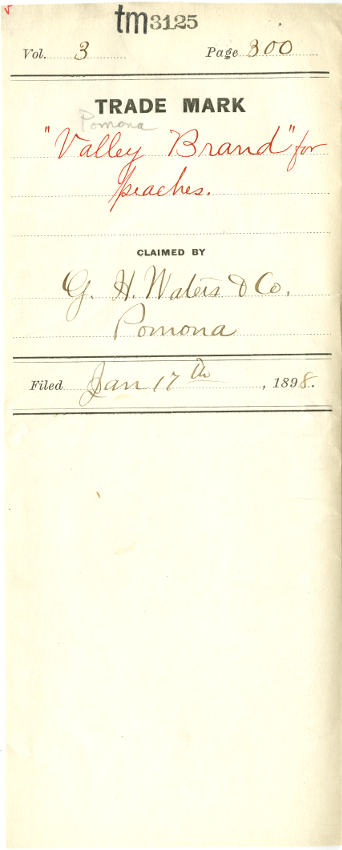 tm3125
Vol. 3 Page 300
TRADE MARK
Pomona
"Valley Brand" for
peaches.
CLAIMED BY
G. H. Waters & Co.
Pomona
Filed Jan 17th, 1898.